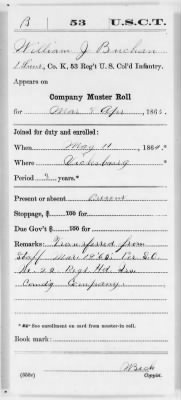 B 53 U.S.C.T.
William J Buchan
1 Lieut, Co. K, 53 Reg't U. S. Col'd Infantry.
Appears on
Company Muster Roll
for Mar & Apr, 1865.
Joined for duty and enrolled:
When May 11, 1864.*
Where Vicksburg
Period 3 years.*
Present or absent Present
Stoppage, $ 100 for
Due Gov't $ 100 for
Remarks: Transferred from
Staff Mar 19/65 Per S.O.
No. 22 Regt Hd Qrs
Comdg Company
* See enrollment on card from muster-in roll.
Book mark:
(358c) Copyist.